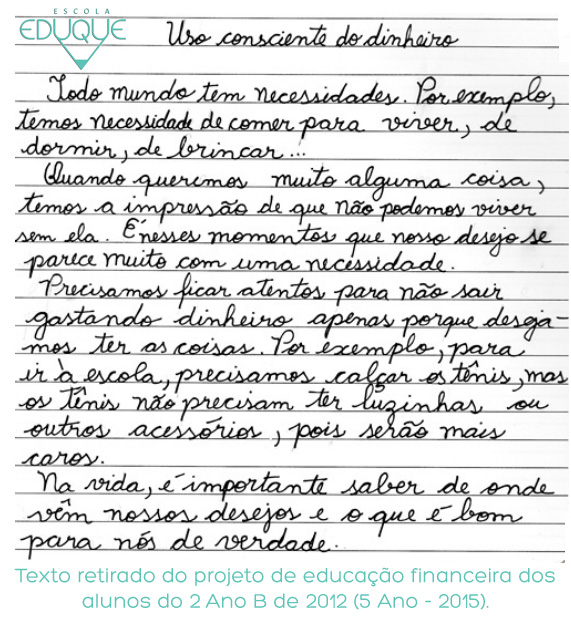 ESCOLA
EDUQUE
Uso consciente do dinheiro
Todo mundo tem necessidades. Por exemplo,
temos necessidade de comer para viver, de
dormir, de brincar...
Quando queremos muito alguma coisa,
temos a impressão de que não podemos viver
sem ela. É nesses momentos que nosso desejo se
parece muito com uma necessidade.
Precisamos ficar atentos para não sair
gastando dinheiro apenas porque desja-
mos ter as coisas. Por exemplo, para
ir à escola, precisamos calçar os tênis, mas
os tênis não precisam ter luzinhas ou
outros acessórios, pois serão mais
caros.
Na vida, é importante saber de onde
vêm nossos desejos e o que é bom
para nós de verdade.
Texto retirado do projeto de educação financeira dos
alunos do 2 Ano B de 2012 (5 Ano - 2015).